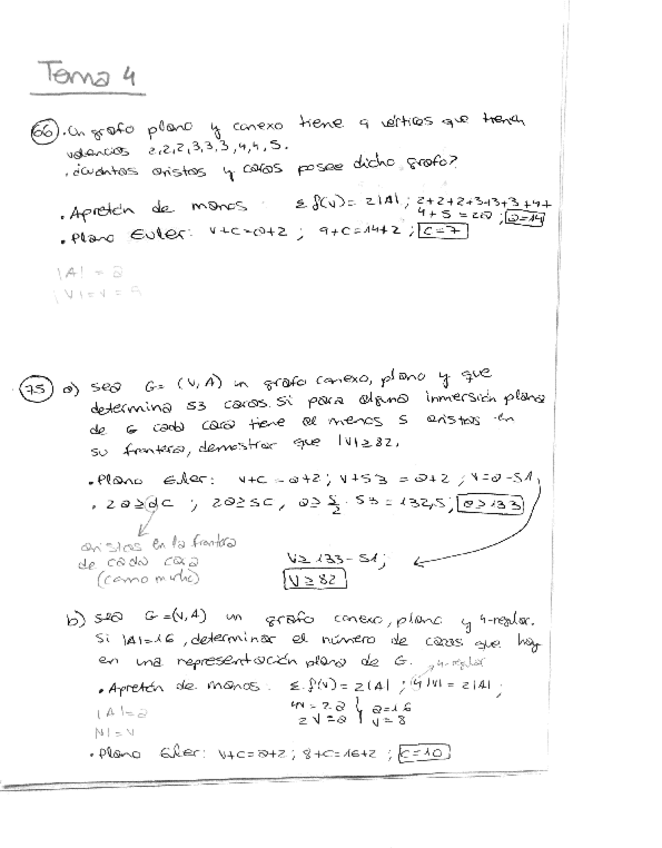 Tema 4
66. Un grafo plano y conexo tiene 9 vértices que tienen
valencias 2,2,2,3,3,3,4,4,5.
¿cuántas aristas y caras posee dicho grafo?
• Apretón de manos: Σ δ(v) = 2|A| ; 2+2+2+3+3+3+4+
4+5 = 2a ; a=14
• Plano Euler: v+c=a+2 ; 9+c=14+2 ; c=7
|A| = a
|V| = v = 9
75 a) sea G = (V, A) un grafo conexo, plano y que
determina 53 caras. Si para alguna inmersión plana
de G cada cara tiene al menos 5 aristas en
su frontera, demostrar que |V| ≥ 82.
• Plano Euler: v+c = a+2 ; v+53 = a+2 ; v=a-51
• 2a ≥ dc ; 2a ≥ 5c, a ≥ 5/2 · 53 = 132,5 ; a ≥ 133
aristas en la frontera
de cada cara
(como mucho)
v ≥ 133 - 51 ;
v ≥ 82
b) sea G = (V, A) un grafo conexo, plano y 4-regular.
Si |A|=16, determinar el número de caras que hay
en una representación plana de G.
4-regular
• Apretón de manos: Σ δ(v) = 2|A| ; 4|V| = 2|A| ;
|A| = a
|V| = v
4v = 2a
2v = a
a=16
v=8
• Plano Euler: v+c=a+2 ; 8+c=16+2 ; c=10